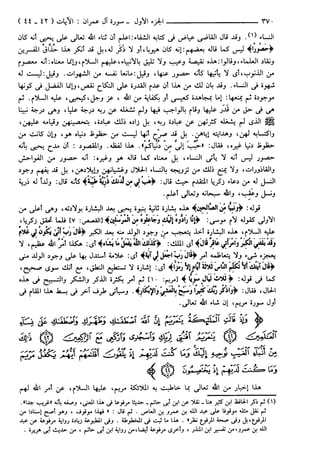 ٣٧٠ ــــــ الجزء الأول ـ سورة آل عمران : الآيات ( ٤٢ ـ ٤٤ )
النساء (١). وقد قال القاضي عياض في كتابه الشفاء: اعلم أن ثناء الله تعالى على يحيى أنه كان
﴿حصورا﴾ ليس كما قاله بعضهم: إنه كان هيوبا، أو لا ذكر له، بل قد أنكر هذا حذاق المفسرين
ونقاد العلماء، وقالوا: هذه نقيصة وعيب ولا تليق بالأنبياء، عليهم السلام، وإنما معناه: أنه معصوم
من الذنوب، أي لا يأتيها كأنه حصور عنها، وقيل: مانعا نفسه من الشهوات. وقيل: ليست له
شهوة في النساء. وقد بان لك من هذا أن عدم القدرة على النكاح نقص، وإنما الفضل في كونها
موجودة ثم يمنعها: إما بمجاهدة كعيسى أو بكفاية من الله ، عز وجل، كيحيى، عليه السلام. ثم
هي في حق من قدر عليها وقام بالواجب فيها ولم تشغله عن ربه درجة عليا، وهي درجة نبينا
ﷺ الذي لم يشغله كثرتهن عن عبادة ربه، بل زاده ذلك عبادة، بتحصينهن وقيامه عليهن،
وإكسابه لهن، وهدايته إياهن. بل قد صرح أنها ليست من حظوظ دنياه هو، وإن كانت من
حظوظ دنيا غيره، فقال: «حبب إلي من دنياكم». هذا لفظه. والمقصود : أن مدح يحيى بأنه
حصور ليس أنه لا يأتي النساء، بل معناه كما قاله هو وغيره: أنه معصوم من الفواحش
والقاذورات، ولا يمنع ذلك من تزويجه بالنساء الحلال وغشيانهن وإيلادهن، بل قد يفهم وجود
النسل له من دعاء زكريا المتقدم حيث قال: ﴿هب لي من لدنك ذرية طيبة﴾ كأنه قال: ولدا له ذرية
ونسل وعقب، والله سبحانه وتعالى أعلم.
قوله: ﴿ونبيا من الصالحين﴾ هذه بشارة ثانية بنبوة يحيى بعد البشارة بولادته، وهي أعلى من
الأولى كقوله لأم موسى: ﴿إنا رادوه إليك وجاعلوه من المرسلين﴾ [القصص: ٧] فلما تحقق زكريا،
عليه السلام، هذه البشارة أخذ يتعجب من وجود الولد منه بعد الكبر ﴿قال رب أنى يكون لي غلام
وقد بلغني الكبر وامرأتي عاقر قال﴾ أي الملك: ﴿كذلك الله يفعل ما يشاء﴾ أي: هكذا أمر الله عظيم، لا
يعجزه شيء ولا يتعاظمه أمر ﴿قال رب اجعل لي آية﴾ أي: علامة أستدل بها على وجود الولد مني
﴿قال آيتك ألا تكلم الناس ثلاثة أيام إلا رمزا﴾ أي: إشارة لا تستطيع النطق، مع أنك سوي صحيح،
كما في قوله: ﴿ثلاث ليال سويا﴾ [مريم: ١٠] ثم أمر بكثرة الذكر والشكر والتسبيح في هذه
الحال، فقال: ﴿واذكر ربك كثيرا وسبح بالعشي والإبكار﴾. وسيأتي طرف آخر في بسط هذا المقام في
أول سورة مريم، إن شاء الله تعالى.
﴿وإذ قالت الملائكة يا مريم إن الله اصطفاك وطهرك واصطفاك على نساء
العالمين (٤٢) يا مريم اقنتي لربك واسجدي واركعي مع الراكعين (٤٣) ذلك من
أنباء الغيب نوحيه إليك وما كنت لديهم إذ يلقون أقلامهم أيهم يكفل
مريم وما كنت لديهم إذ يختصمون (٤٤)﴾
هذا إخبار من الله تعالى بما خاطبت به الملائكة مريم، عليها السلام، عن أمر الله لهم